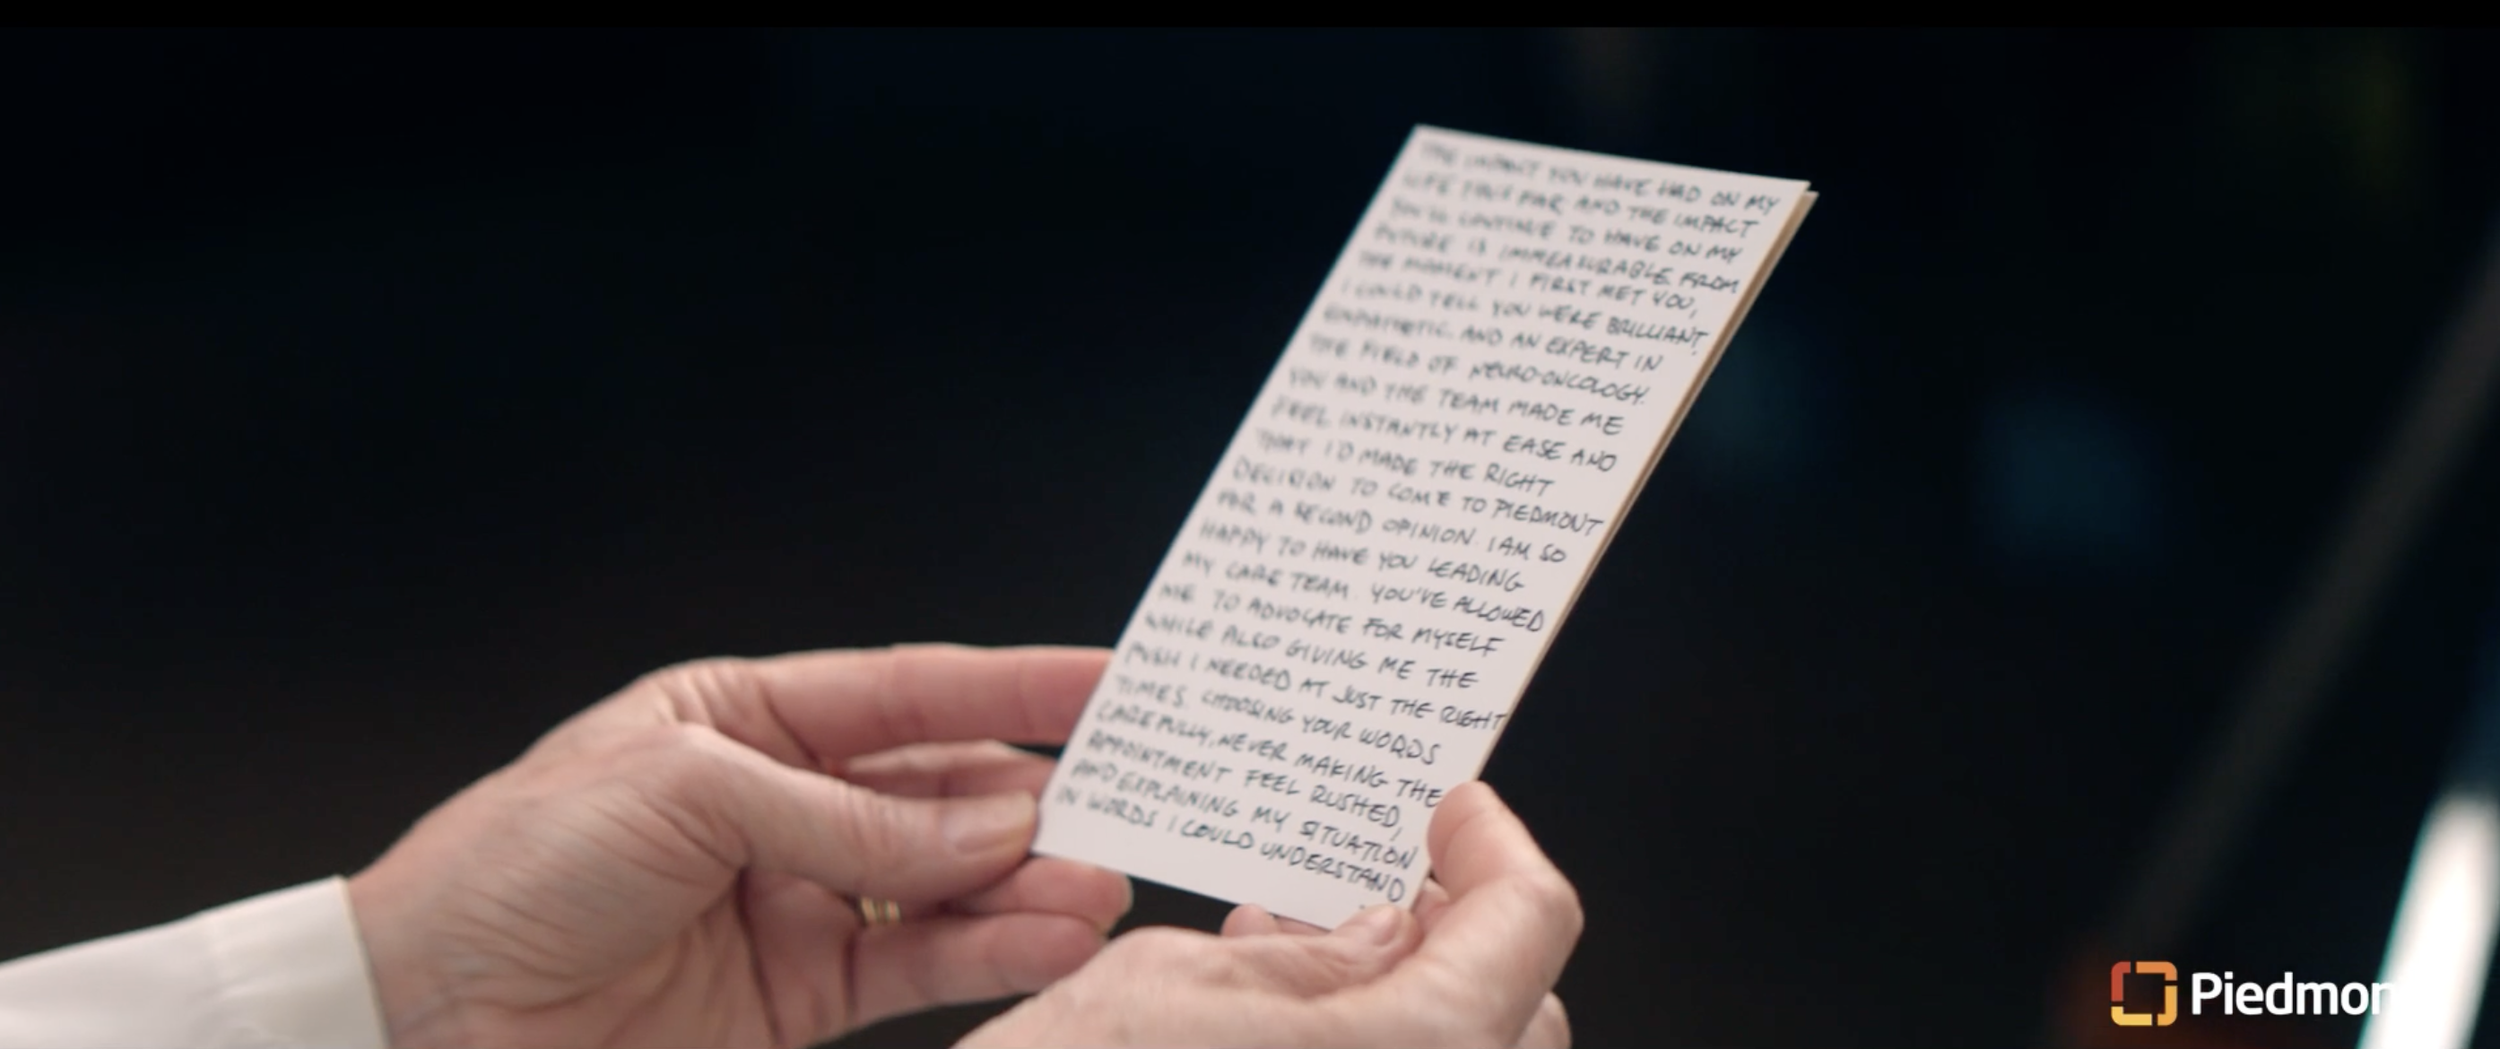 THE IMPACT YOU HAVE HAD ON MY
LIFE THUS FAR AND THE IMPACT
YOU'LL CONTINUE TO HAVE ON MY
FUTURE IS IMMEASURABLE. FROM
THE MOMENT I FIRST MET YOU,
I COULD TELL YOU WERE BRILLIANT,
EMPATHETIC, AND AN EXPERT IN
THE FIELD OF NEURO-ONCOLOGY.
YOU AND THE TEAM MADE ME
FEEL INSTANTLY AT EASE AND
THAT I'D MADE THE RIGHT
DECISION TO COME TO PIEDMONT
FOR A SECOND OPINION. I AM SO
HAPPY TO HAVE YOU LEADING
MY CARE TEAM. YOU'VE ALLOWED
ME TO ADVOCATE FOR MYSELF
WHILE ALSO GIVING ME THE
PUSH I NEEDED AT JUST THE RIGHT
TIMES. CHOOSING YOUR WORDS
CAREFULLY, NEVER MAKING THE
APPOINTMENT FEEL RUSHED,
AND EXPLAINING MY SITUATION
IN WORDS I COULD UNDERSTAND
Piedmon